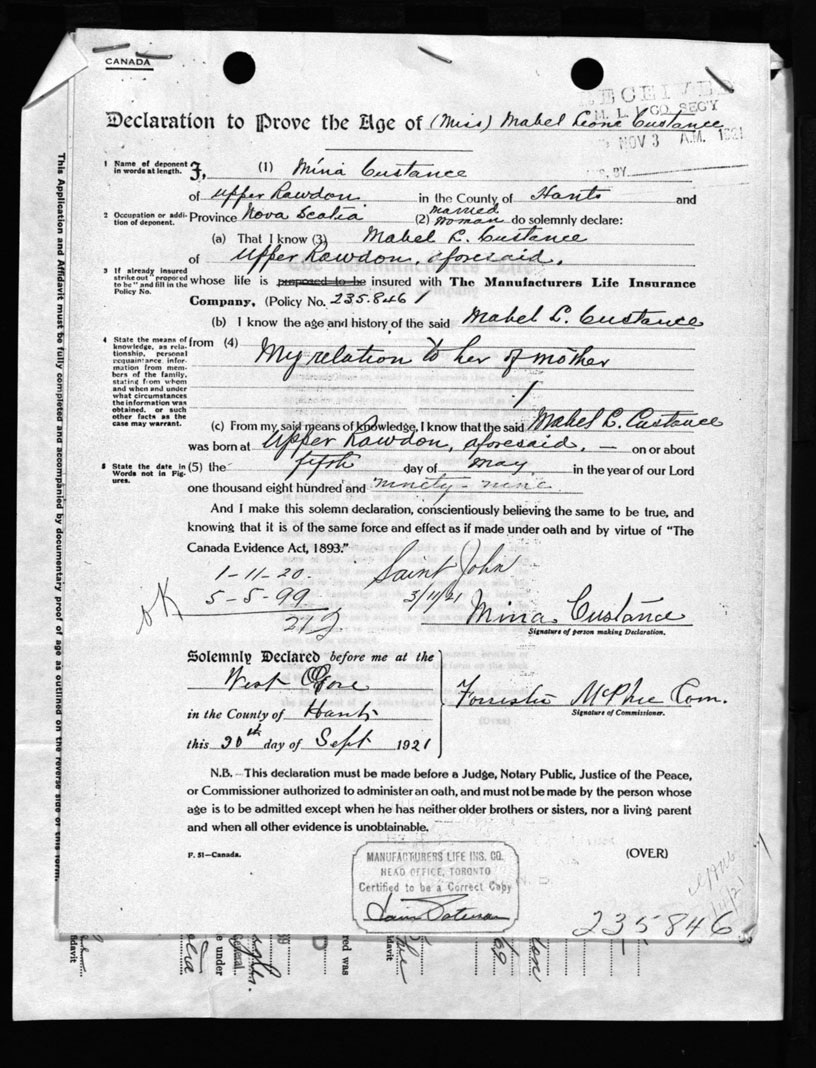 CANADA
Declaration to Prove the Age of (Miss) Mabel Leone Custance
RECEIVED
M. L. I. CO. SEC'Y
NOV 3 A.M. 1921
BY
This Application and Affidavit must be fully completed and accompanied by documentary proof of age as outlined on the reverse side of this form.
1 Name of deponent in words at length.
I, (1) Mina Custance
of Upper Rawdon in the County of Hants and
2 Occupation or addition of deponent.
Province Nova Scotia (2) married woman do solemnly declare:
(a) That I know (3) Mabel L. Custance
of Upper Rawdon, aforesaid,
3 If already insured strike out "proposed to be" and fill in the Policy No.
whose life is proposed to be insured with The Manufacturers Life Insurance
Company, (Policy No. 235.846)
(b) I know the age and history of the said Mabel L. Custance
4 State the means of knowledge, as relationship, personal requaintance, information from members of the family, stating from whom and when and under what circumstances the information was obtained, or such other facts as the case may warrant.
from (4) My relation to her of mother
(c) From my said means of knowledge, I know that the said Mabel L. Custance
was born at Upper Rawdon, aforesaid. — on or about
5 State the date in Words not in Figures.
(5) the fifth day of May in the year of our Lord
one thousand eight hundred and ninety-nine
And I make this solemn declaration, conscientiously believing the same to be true, and
knowing that it is of the same force and effect as if made under oath and by virtue of "The
Canada Evidence Act, 1893."
1-11-20
5-5-99
OK
Saint John
3/11/21
Mina Custance
Signature of person making Declaration.
Solemnly Declared before me at the
West Gore
in the County of Hants
this 30th day of Sept 1921
McPhee Com.
Signature of Commissioner.
N.B.—This declaration must be made before a Judge, Notary Public, Justice of the Peace,
or Commissioner authorized to administer an oath, and must not be made by the person whose
age is to be admitted except when he has neither older brothers or sisters, nor a living parent
and when all other evidence is unobtainable.
F. 51—Canada.
(OVER)
MANUFACTURERS LIFE INS. CO.
HEAD OFFICE, TORONTO
Certified to be a Correct Copy
235846
fidavit
e under
red was
davit